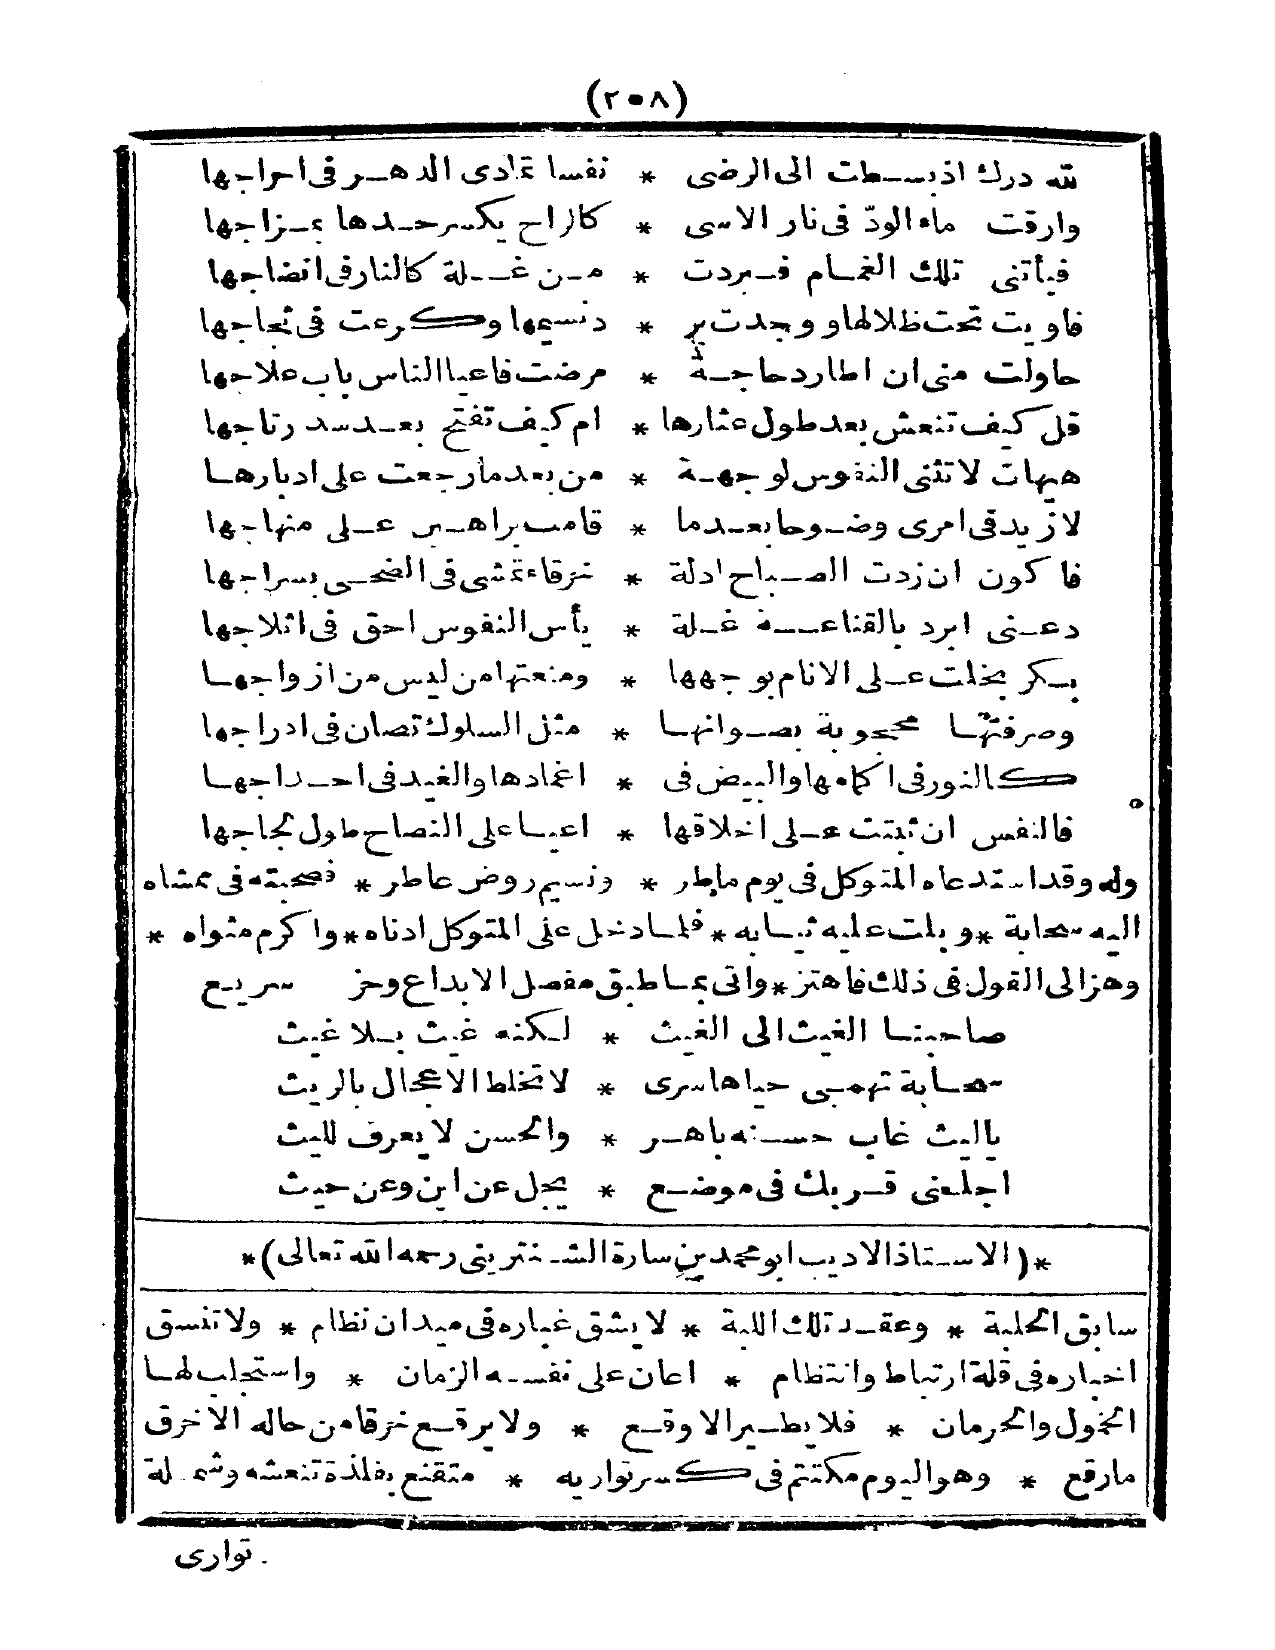 (٢٠٨)
لله درك اذبسطت الى الرضى * نفسا تمادى الدهر فى احراجها
وارقت ماء الودّ فى نار الاسى * كالراح يكسر حدها بمزاجها
فيأتنى تلك الغمام فبردت * من غلة كالنار فى انضاجها
فاويت تحت ظلالها ووجدت بر * دنسيمها وكرعت فى ثجاجها
حاولت منى ان اطارد حاجة * مرضت فاعيا الناس باب علاجها
قل كيف تنعش بعد طول عثارها * ام كيف تفتح بعد سد رتاجها
هيهات لا تثنى النفوس لوجهة * من بعد ما رجعت على ادبارها
لاز يد فى امرى وضوحا بعدما * قامت براهين على منهاجها
فاكون ان زدت الصباح ادلة * خرقاء تمشى فى الضحى بسراجها
دعنى ابرد بالقناعة غلة * يأس النفوس احق فى اثلاجها
بكر بخلت على الانام بوجهها * ومنعتها من ليس من ازواجها
وصرفتها محجوبة بصوانها * مثل السلوك تصان فى ادراجها
كالنور فى اكمامها والبيض فى * اغمادها والغيد فى احداجها
فالنفس ان ثبتت على اخلاقها * اعيا على النصاح طول لجاجها
وله وقد استدعاه المتوكل فى يوم ماطر * ونسيم روض عاطر * فصحبته فى ممشاه
اليه سحابة * وبلت عليه ثيابه * فلما دخل على المتوكل ادناه * واكرم مثواه *
وهز الى القول فى ذلك فاهتز * واتى بما طبق مفصل الابداع وحز سريع
صاحبنا الغيث الى الغيث * لكنه غيث بلا غيث
سحابة تهمى حياها سرى * لا تخلط الاعجال بالريث
ياليث غاب حسنه باهر * والحسن لا يعرف لليث
اجلعنى قربك فى موضع * يجل عن اين وعن حيث
*(الاستاذ الاديب ابو محمد بن سارة الشنترينى رحمه الله تعالى)*
سابق الحلبة * وعقد تلك اللبة * لا يشق غباره فى ميدان نظام * ولا تنسق
اخباره فى قلة ارتباط وانتظام * اعان على نفسه الزمان * واستجلب لها
الخمول والحرمان * فلا يطير الا وقع * ولا يرقع خرقا من حاله الا خرق
مارقع * وهو اليوم مكتتم فى كسر تواريه * متقنع بفلذة تنعشه وشملة
توارى